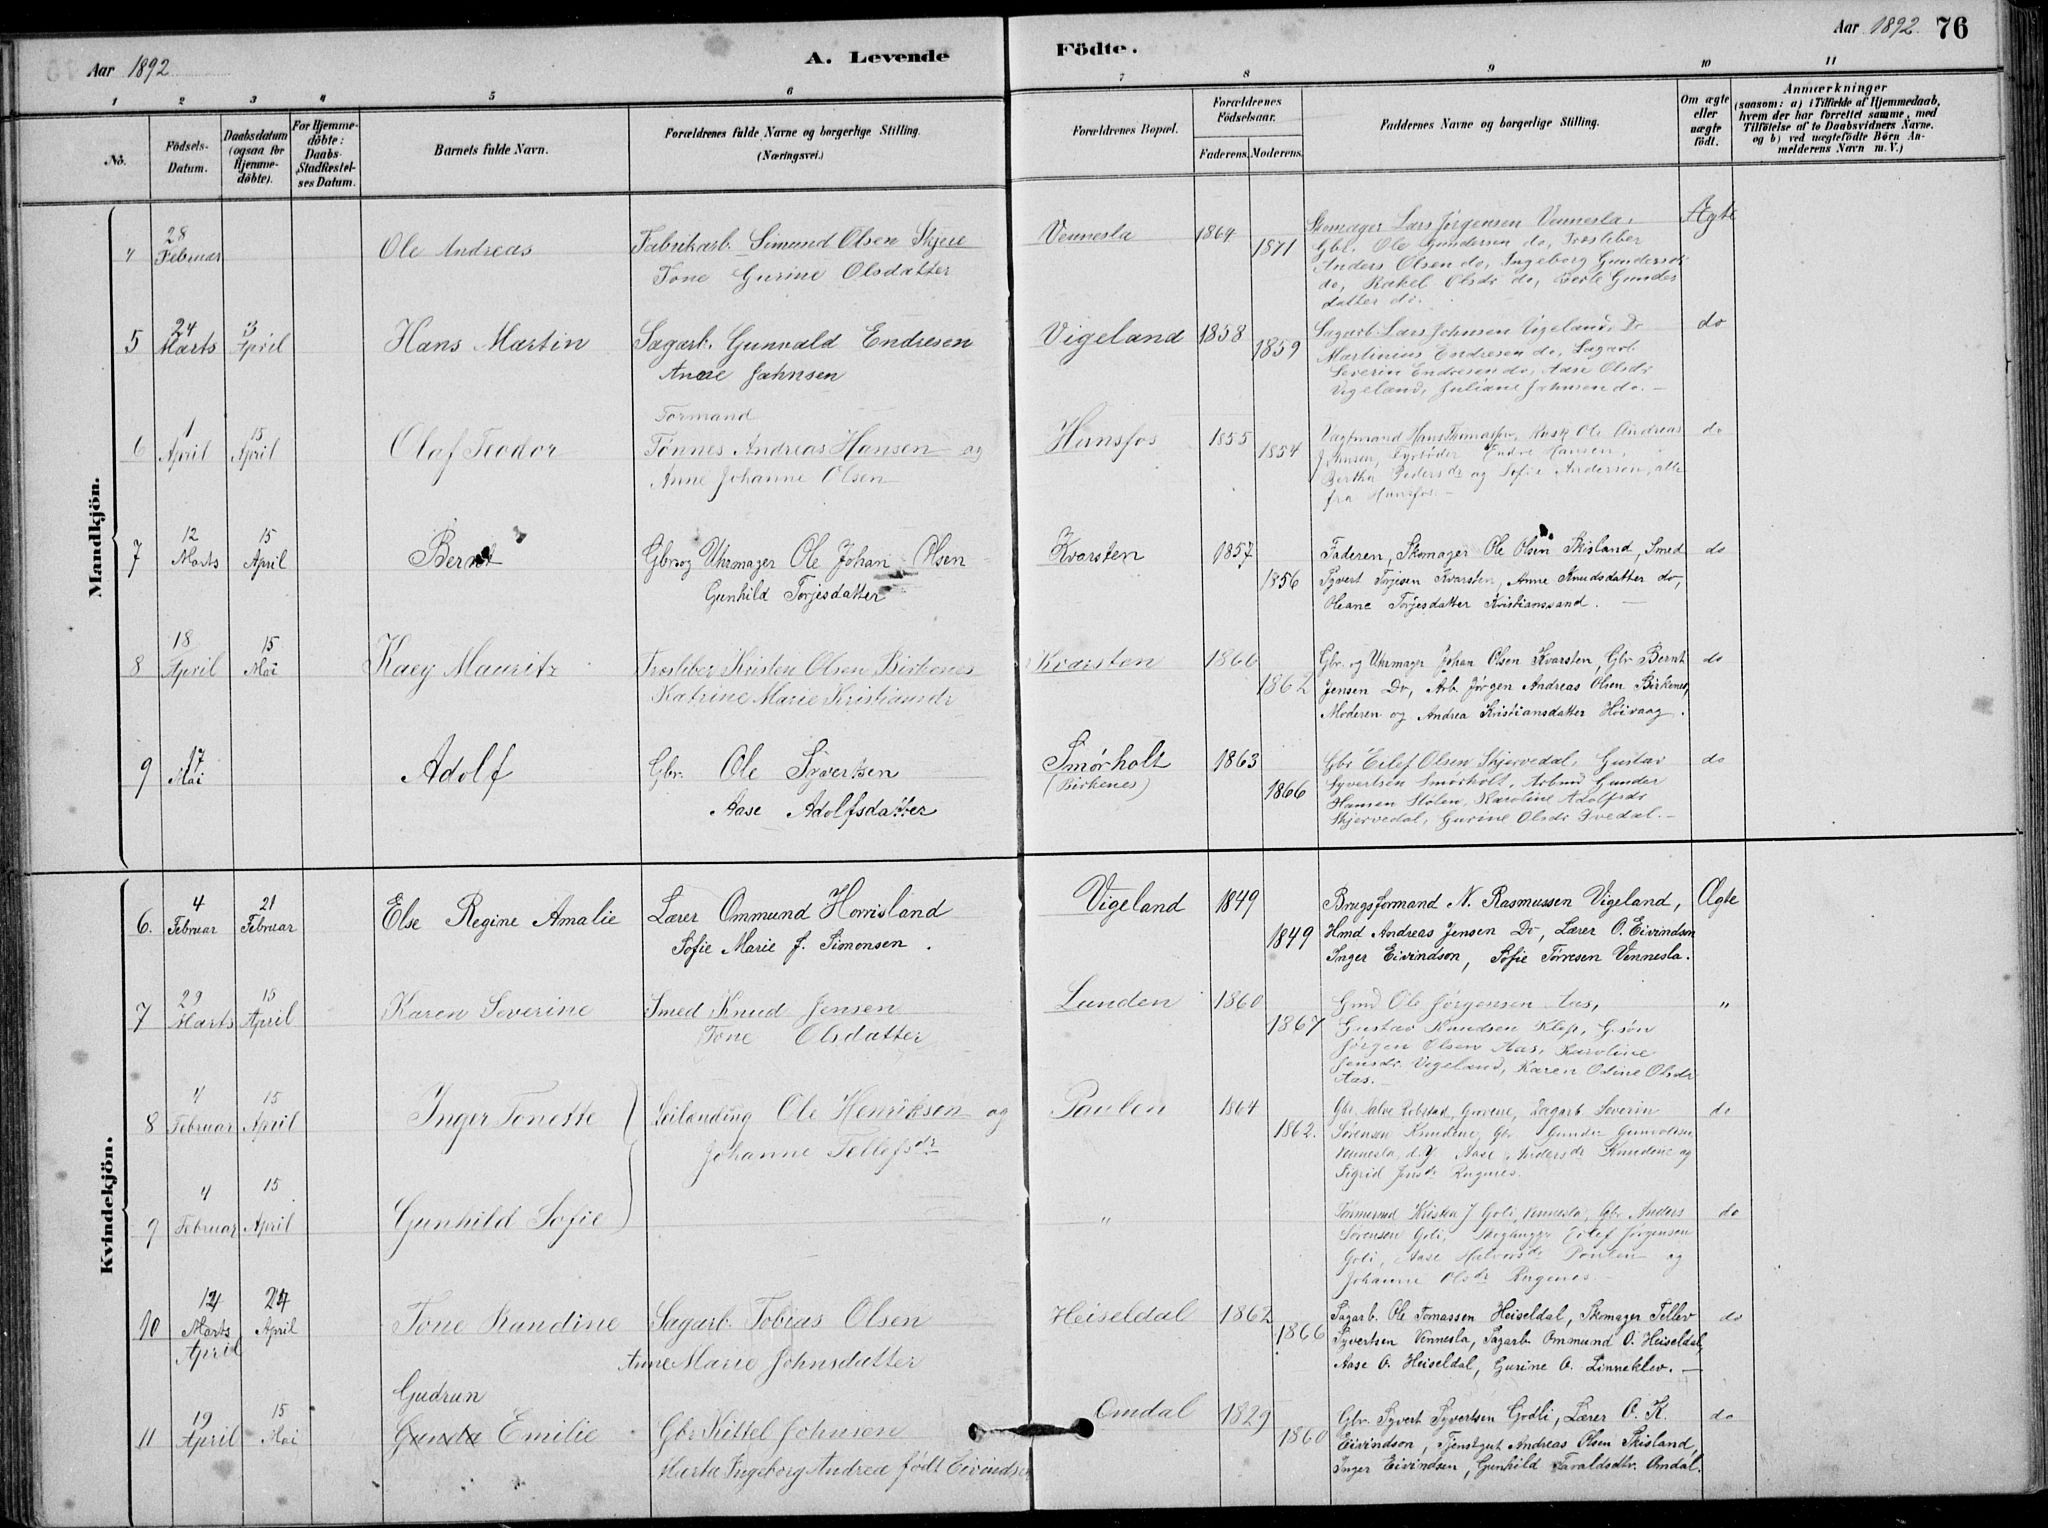 Aar 1892
A. Levende
Födte.
Aar 1892. 76
1 2 3 4 5 6 7 8 9 10 11
No.
Födsels-Datum.
Daabsdatum (ogsaa for Hjemme-döbte).
For Hjemme-döbte: Daabs-Stadfæstel-ses Datum.
Barnets fulde Navn.
Forældrenes fulde Navne og borgerlige Stilling. (Næringsvei.)
Forældrenes Bopæl.
Forældrenes Födselsaar.
Faderens. Moderens.
Faddernes Navne og borgerlige Stilling.
Om ægte eller uægte födt.
Anmærkninger
(saasom: a) i Tilfælde af Hjemmedaab,
hvem der har forrettet samme, med
Tilföielse af to Daabsvidners Navne.
og b) ved uægtefödte Börn An-
melderens Navn m. V.)
Mandkjön.
4 28 Februar Ole Andreas Fabrikarb. Simund Olsen Skjeie
Tone Gurine Olsdatter
Vennesla 1864 1871
Skomager Lars Jørgensen Vennesla,
Gbr. Ole Gundersen do, Træsleber
Anders Olsen do, Ingeborg Gundersdr
do, Rakel Olsdr do, Berte Gunders
datter do.
Ægte
5 24 Marts 3 April Hans Martin Sagarb. Gunvald Endresen
Anne Johnsen
Vigeland 1858 1859
Sagarb. Lars Johnsen Vigeland, Do
Martinius Endresen do, Sagarb.
Severin Endresen do, Aase Olsdr
Vigeland, Juliane Johnsen do. -
do
6 1 April 15 April Olaf Teodor Formand
Tønnes Andreas Hansen og
Anne Johanne Olsen
Hunsfos 1855 1854
Vagtmand Hans Thomassen, Ole Andreas
Johnsen, Fyrbøder Endre Hansen,
Bertha Pedersdr og Sofie Andersen, alle
fra Hunsfos. -
do
7 12 Marts 15 April Bernt Gbr. og Uhrmager Ole Johan Olsen
Gunhild Torjesdatter
Kvarsten 1857 1856
Faderen, Skomager Ole Olsen Skisland, Smed
Syvert Torjesen Kvarsten, Anne Knudsdatter do,
Oleane Torjesdatter Kristianssand. -
do
8 18 April 15 Mai Kaey Mauritz Træsleber Kristen Olsen Birkenes
Katrine Marie Kristiansdr
Kvarsten 1866 1862
Gbr. og Uhrmager Johan Olsen Kvarsten, Gbr Bernt
Jensen Do, Arb. Jørgen Andreas Olsen Birkenes,
Moderen og Andrea Kristiansdatter Höivaag.
do
9 17 Mai Adolf Gbr. Ole Syvertsen
Aase Adolfsdatter
Smørholt (Birkenes) 1863 1866
Gbr Eilef Olsen Skjervedal, Gustav
Syvertsen Smørholt, Arbmd Gunder
Hansen Stølen, Karoline Adolfsdr
Skjervedal, Gurine Olsdr Tvedal. -
do
Kvindekjön.
6. 4 Februar 21 Februar Else Regine Amalie Lærer Ommund Horrisland
Sofie Marie J. Simonsen.
Vigeland 1849 1849
Brugsformand N. Rasmussen Vigeland,
Hmd Andreas Jensen Do, Lærer O. Eivindson
Inger Eivindson, Sofie Torresen Vennesla.
Ægte
7 29 Marts 15 April Karen Severine Smed Knud Jensen
Tone Olsdatter
Lunden 1860 1867
Gmd Ole Jørgensen Aas,
Gustav Knudsen Klep, G.søn
Jørgen Olsen Aas, Karoline
Jensdr. Vigeland, Karen Odine Olsdr
Aas. -
"
8 4 Februar 15 April Inger Tonette Leilænding Ole Henriksen og
Johanne Tellefsdr
Paulen 1864 1862.
Gbr. Salve Robstad, Grovene, Sagarb. Severin
Sørensen Knudene, Gbr Gunder Gunvaldsen
Vennesla, Aase Andersdr Knudene og
Sigrid Jensdr Rugnes.
do
9 4 Februar 15 April Gunhild Sofie "
Kristen J Goli, Vennesla, Gbr Anders
Sørensen Goli, Eilef Jørgensen
Goli, Aase Halvorsdr Poulen og
Johanne Olsdr Rugenes. -
do
10 12 Marts April 24 April Tone Randine Sagarb. Tobias Olsen
Anne Marie Johnsdatter
Heiseldal 1862 1866
Sagarb. Ole Tomassen Heiseldal, Skomager Tellev
Syvertsen Vennesla, Sagarb. Ommund O. Heiseldal,
Aase O. Heiseldal, Gurine O. Linneklev. -
do
11 19 April 15 Mai Gudrun
Gunda Emilie Gbr. Kittel Johnsen
Marta Ingeborg Andrea født Eivindsen
Omdal 1829 1860
Gbr. Syvert Syvertsen Godli, Lærer O. K.
Eivindson, Tjenstgut Andreas Olsen Skisland,
Inger Eivindsen, Gunhild Taraldsdtr. Omdal.
do